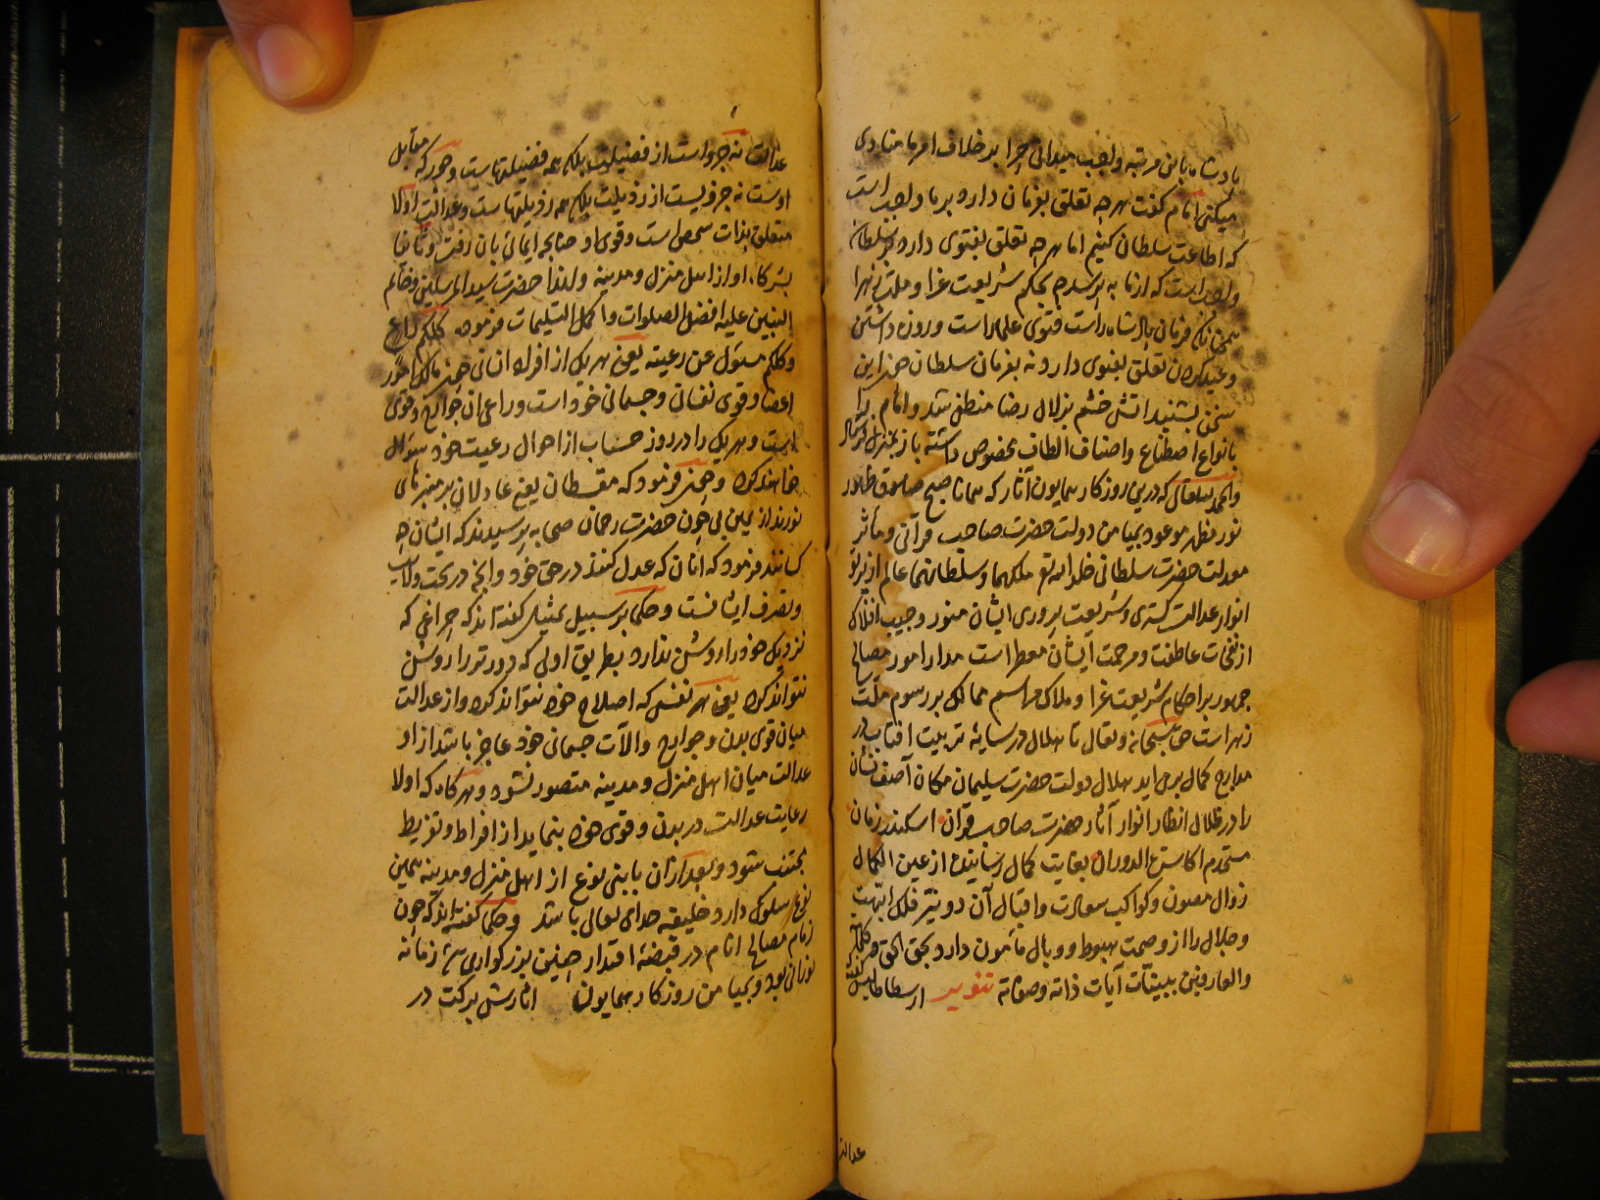 پادشاه باین مرتبه واجب میدانی چرا بر خلاف امر ما منادی
میکنی امام گفت هرچه تعلق بفرمان دارد بر ما واجب است
که اطاعت سلطان کنیم اما هرچه تعلق بفتوی دارد بر سلطان
واجب است که از ما بپرسد چه بحکم شریعت غرا و ملت زهرا
همچنانکه فرمان پادشاه راست فتوی علما راست و روزه داشتن
و عید کردن تعلق بفتوی دارد نه بفرمان سلطان چون این
سخن بشنید آتش خشم بزلال رضا منطفی شد و امام را
بانواع اصطناع و اصناف الطاف مخصوص داشته باز بمنزل فرستاد
والحمد لله تعالی که درین روزگار همایون آثار که همانا صبح صادق ظهور
نور مظهر موعود بمیامن دولت حضرت صاحب قرانی و مآثر
معدلت حضرت سلطانی خلد الله تع ملکهما و سلطانهما عالم از پرتو
انوار عدالت گستری و شریعت پروری ایشان منور و جیب افلاک
از نفحات عاطفت و مرحمت ایشان معطر است مدار امور مصالح
جمهور بر احکام شریعت غرا و ملاک مراسم ممالک بر رسوم ملت
زهراست حق سبحانه و تعالی تا هلال در سایهٔ تربیت آفتاب در
مدارج کمال برمی‌آید هلال دولت حضرت سلیمان مکان آصف نشان
را در ظلال انظار انوار آثار حضرت صاحب قران اسکندر زمان
مستخدم اکاسرة الدوران بغایت کمال رسانیده از عین الکمال
زوال مصون و کواکب سعادت و اقبال آن دو نیر فلک ابهت
و جلال را از وصمت هبوط و وبال مأمون دارد بحق الحق و
والعارفین ببینات آیات ذاته وصفاته تنویر ارسطاطالیس گفته
عدالت
عدالت نه جزو است از فضیلت بلکه همه فضیلتهاست و جور که مقابل
اوست نه جزویست از رذیلت بلکه همه رذیلتهاست و عدالت اولا
متعلق بذات شخص است و قوی او چنانچه ایمائی بان رفت و ثانیا
بشرکاء او از اهل منزل و مدینه ولهذا حضرت سید المرسلین و خاتم
النبیین علیه افضل الصلوات و اکمل التسلیمات فرموده کلکم راع
وکلکم مسئول عن رعیته یعنی هر یک از افراد انسانی چون مالک امور
اعضا و قوی نفسانی و جسمانی خود است و راعی ان جوارح و قوی
است و هر یک را در روز حساب از احوال رعیت خود سؤال
خواهند کرد و حضرت فرمود که مقسطان یعنی عادلان بر منبرهای
نورند از یمین بی چون حضرت رحمان صحابه پرسیدند که ایشان چه
کسانند فرمود که انان که عدل کنند در حق خود و آنچه در تحت ولایت
و تصرف ایشانست و حکما بر سبیل تمثیل گفته اند که چراغی که
نزدیک خود را روشن ندارد بطریق اولی که دورتر را روشن
نتواند کرد یعنی هر نفسی که اصلاح خود نتواند کرد و از عدالت
میان قوی بدن و جوارح و آلات جسمانی خود عاجز باشد از او
عدالت میان اهل منزل و مدینه متصور نشود و هرگاه که اولا
رعایت عدالت در بدن و قوی خود بنماید از افراط و تفریط
مجتنب شود و بعد از ان با بنی نوع از اهل منزل و مدینه همین
نوع سلوک دارد خلیفه خدای تعالی باشد و حکما گفته اند که چون
زمام مصالح انام در قبضهٔ اقتدار چنین بزرگواری زمانه
نورانی بود و بمیامن روزگار همایون اثارش برکت در